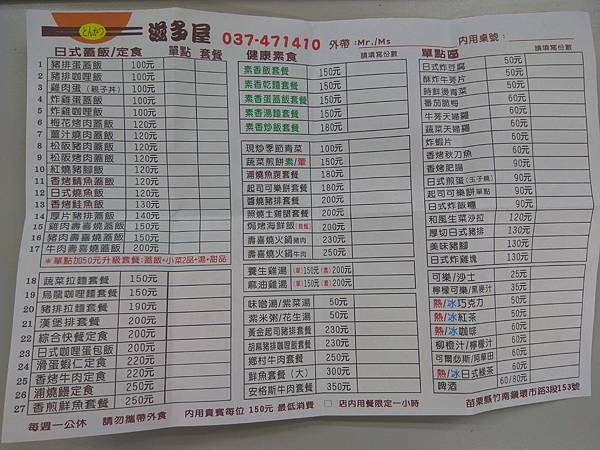 とんかつ
滋多屋
037-471410 外帶:Mr./Ms
內用桌號:
日式蓋飯/定食 單點 套餐
1 豬排蛋蓋飯 100元
2 豬排咖哩飯 100元
3 雞肉蛋(親子丼) 100元
4 炸雞蛋蓋飯 100元
5 炸雞咖哩飯 100元
6 梅花烤肉蓋飯 120元
7 薑汁燒肉蓋飯 120元
8 松阪豬肉蓋飯 120元
9 松阪烤肉蓋飯 120元
10 紅燒豬腳飯 120元
11 香烤鯖魚蓋飯 120元
12 日式燒魚飯 120元
13 香烤鮭魚飯 130元
14 厚片豬排蓋飯 140元
15 雞肉壽喜燒蓋飯 150元
16 豬肉壽喜燒蓋飯 150元
17 牛肉壽喜燒蓋飯 200元
*單點加050元升級套餐:蓋飯+小菜2品+湯+甜品
18 蔬菜拉麵套餐 150元
19 烏龍咖哩麵套餐 150元
20 豬排拉麵套餐 190元
21 漢堡排套餐 200元
22 綜合快餐定食 200元
23 日式咖哩蛋包飯 200元
24 滑蛋蝦仁定食 220元
25 香烤牛肉定食 250元
26 浦燒鰻定食 250元
27 香煎鮮魚套餐 250元
健康素食 請填寫份數
素香飯套餐 150元
素香乾麵套餐 150元
素香蛋蓋飯套餐 150元
素香湯麵套餐 150元
素香炒飯套餐 180元
現炒季節青菜 100元
蔬菜煎餅素/葷 150元
浦燒魚腹套餐 180元
起司可樂餅套餐 180元
醬燒豬排套餐 200元
照燒土雞腿套餐 200元
焗烤海鮮飯(套餐) 200元
壽喜燒火鍋豬肉 230元
壽喜燒火鍋牛肉 250元
養生雞湯(單)150元(套)200元
麻油雞湯(單)150元(套)200元
味噌湯/紫菜湯 50元
紫米粥/花生湯 50元
黃金起司豬排套餐 230元
胡麻豬排咖哩套餐 230元
鄉村牛肉套餐 250元
鮮魚套餐(大) 300元
安格斯牛肉套餐 350元
單點區 請填寫份數
日式炸豆腐 50元
酥炸牛蒡片 50元
時鮮燙青菜 50元
番茄脆梅 60元
牛蒡天婦羅 60元
蔬菜天婦羅 60元
炸蝦片 60元
香烤秋刀魚 60元
香烤肥腸 90元
日式煎蛋(玉子燒) 90元
起司可樂餅單點 90元
日式炸飯糰 90元
和風生菜沙拉 120元
厚切日式豬排 130元
美味豬腳 130元
日式炸雞塊 130元
可樂/沙士 25元
檸檬可樂/黑麥汁 35元
熱/冰巧克力 50元
熱/冰紅茶 60元
熱/冰咖啡 60元
柳橙汁/檸檬汁 60元
可爾必斯/阿華田 60元
熱/冰日式綠茶 60元
啤酒 60/80元
每週一公休 請勿攜帶外食 內用貴賓每位 150元 最低消費 □ 店內用餐限定一小時 苗栗縣竹南鎮環市路3段153號